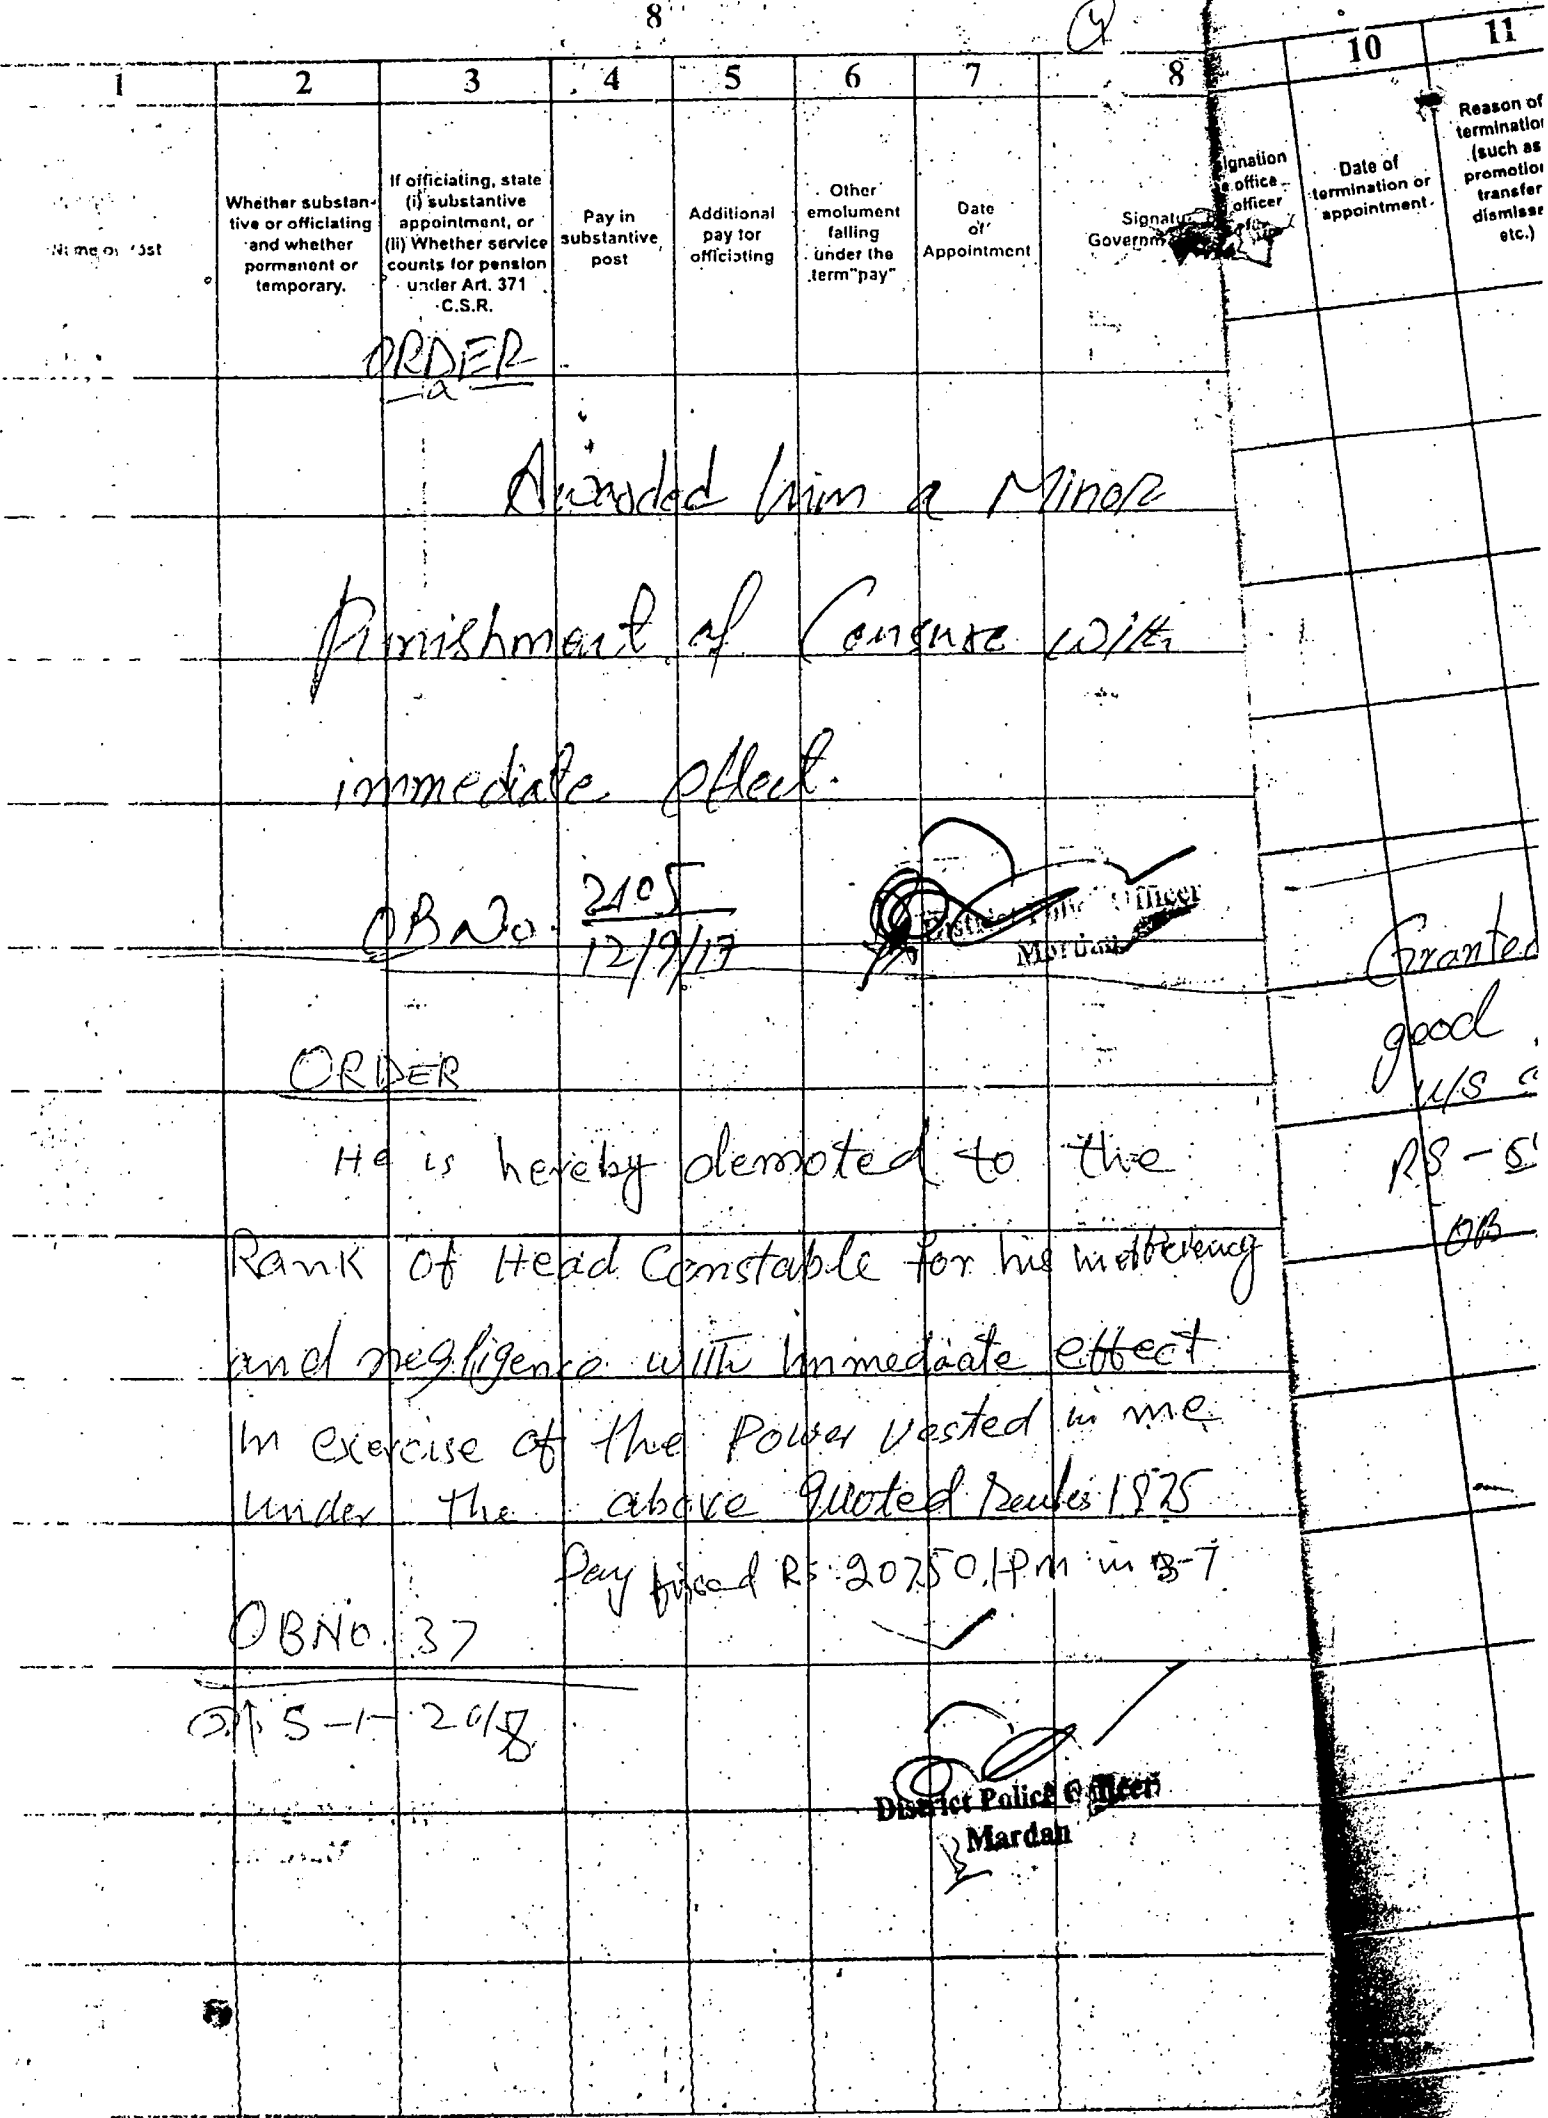 8
1 2 3 4 5 6 7 8 10 11
Whether substan-
tive or officiating
and whether
permanent or
temporary.
If officiating, state
(i) substantive
appointment, or
(ii) Whether service
counts for pension
under Art. 371
C.S.R.
Pay in
substantive
post
Additional
pay for
officiating
Other
emolument
falling
under the
term"pay"
Date
of
Appointment
Signatu
Governm
ignation
office
officer
Date of
termination or
appointment
Reason of
termination
(such as
promotion
transfer
dismissa
etc.)
ORDER
Awarded him a Minor
Punishment of Censure with
immediate effect.
OB No. 2105
12/9/17
District Police Officer
Mardan
ORDER
He is hereby demoted to the
Rank of Head Constable for his inefficiency
and negligence with immediate effect
in exercise of the Power vested in me
under the above quoted Rules 1975
Pay fixed Rs. 20750/PM in B-7
OB No. 37
5-1-2018
District Police Officer
Mardan
Granted
good
U/S
RS -
OB